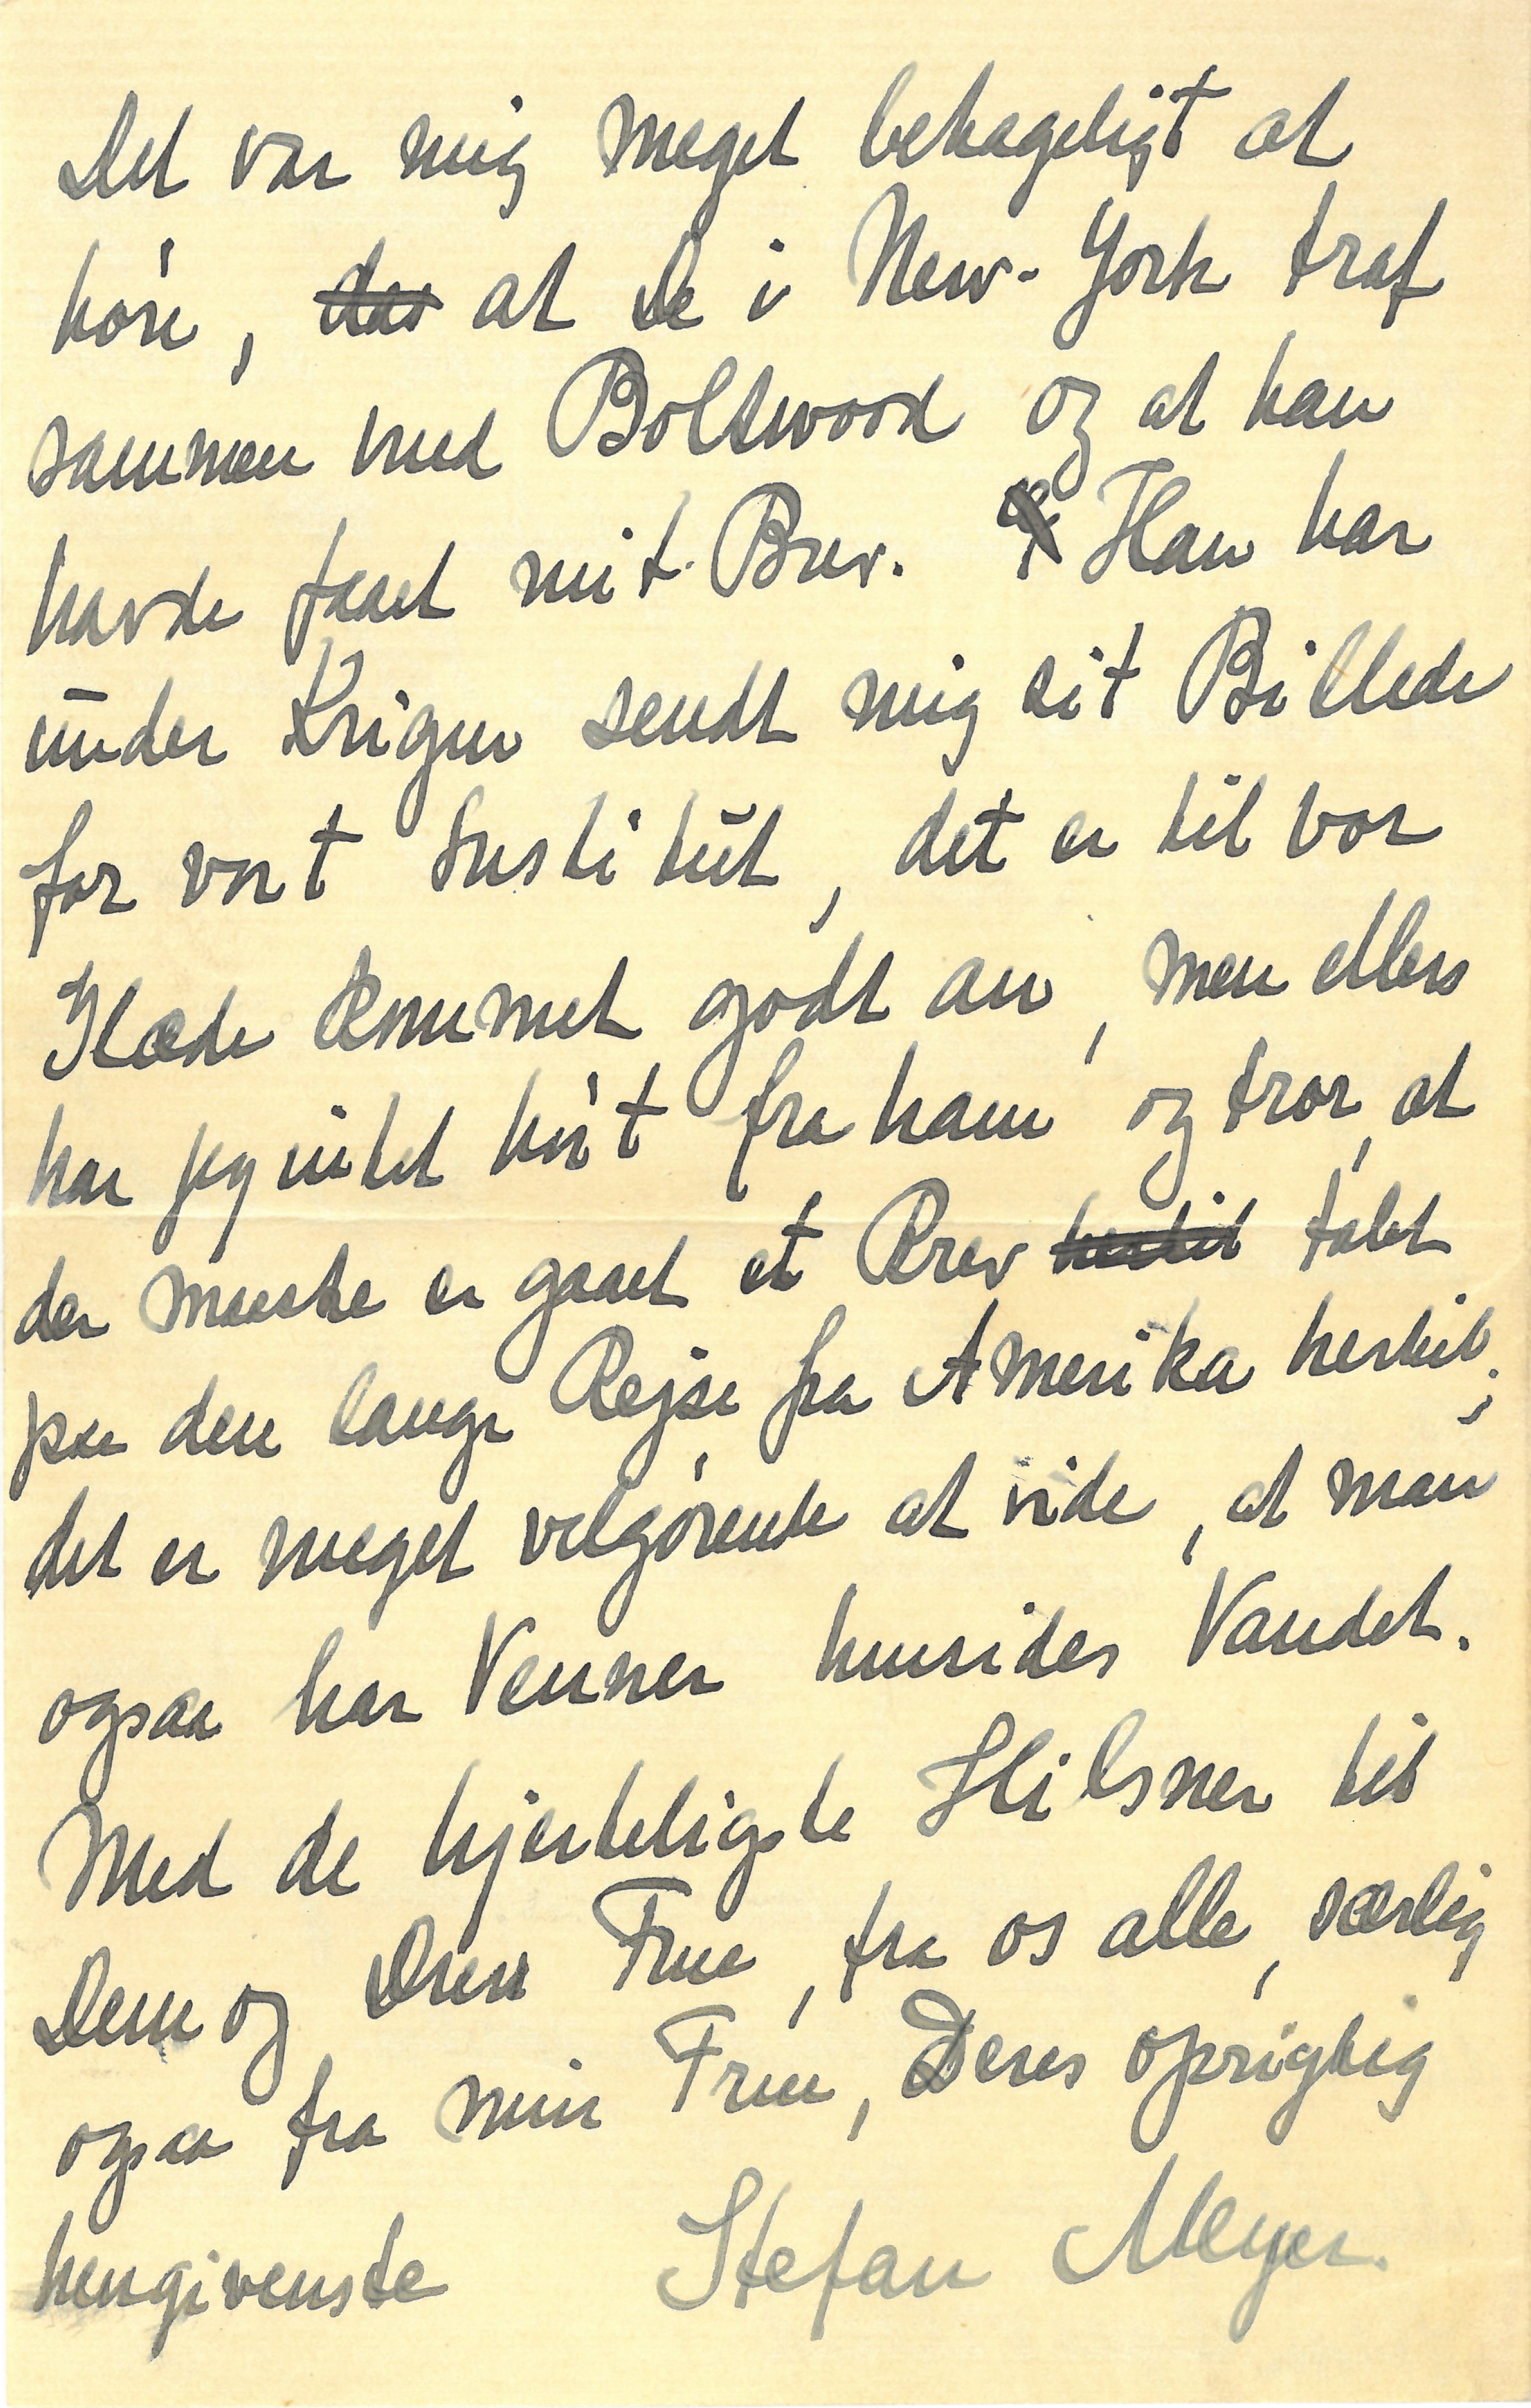 Det var mig meget behageligt at
höre, das at De i New-York traf
sammen med Boltwood og at han
havde faaet mit Brev. Han har
ūnder Krigen sendt mig sit Billede
for vort Institūt, det er til vor
Glæde kommet godt an, men ellers
har jeg intet hört fra ham og tror, at
der maaske er gaaet et Brev hertil tabt
paa den lange Rejse fra Amerika hertil;
det er meget velgörende at vide, at man
ogsaa har Venner hinsides Vandet.
Med de hjerteligste Hilsner til
Dem og Deres Frue, fra os alle, særlig
ogsaa fra min Frue, Deres oprigtig
hengivenste Stefan Meyer.